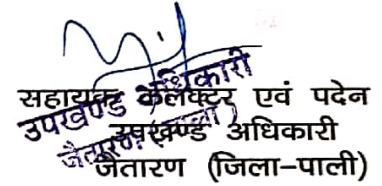 सहायक कलेक्टर एवं पदेन
उपखण्ड अधिकारी
जैतारण (जिला-पाली)
उपखण्ड अधिकारी
जैतारण (पाली)